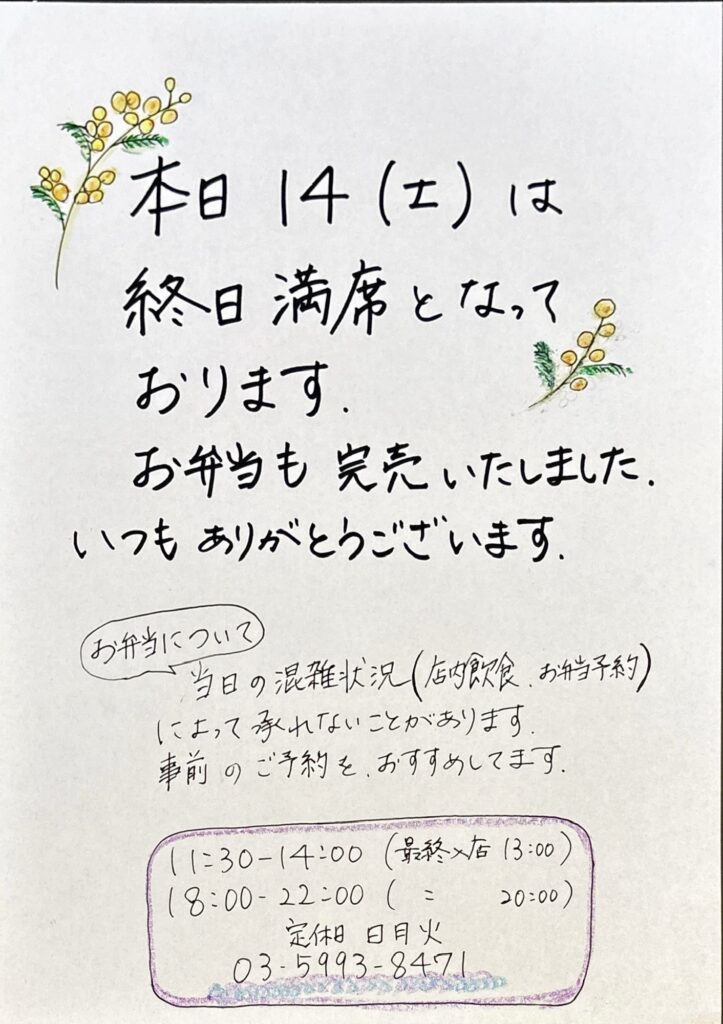 本日 14(土)は
終日 満席となって
おります.
お弁当も 完売いたしました.
いつも ありがとうございます.
お弁当について
当日の混雑状況(店内飲食、お弁当予約)
によって承れないことがあります.
事前のご予約を、おすすめしてます.
11:30-14:00 (最終入店 13:00)
18:00-22:00 ( 〃 20:00)
定休日 日月火
03-5993-8471